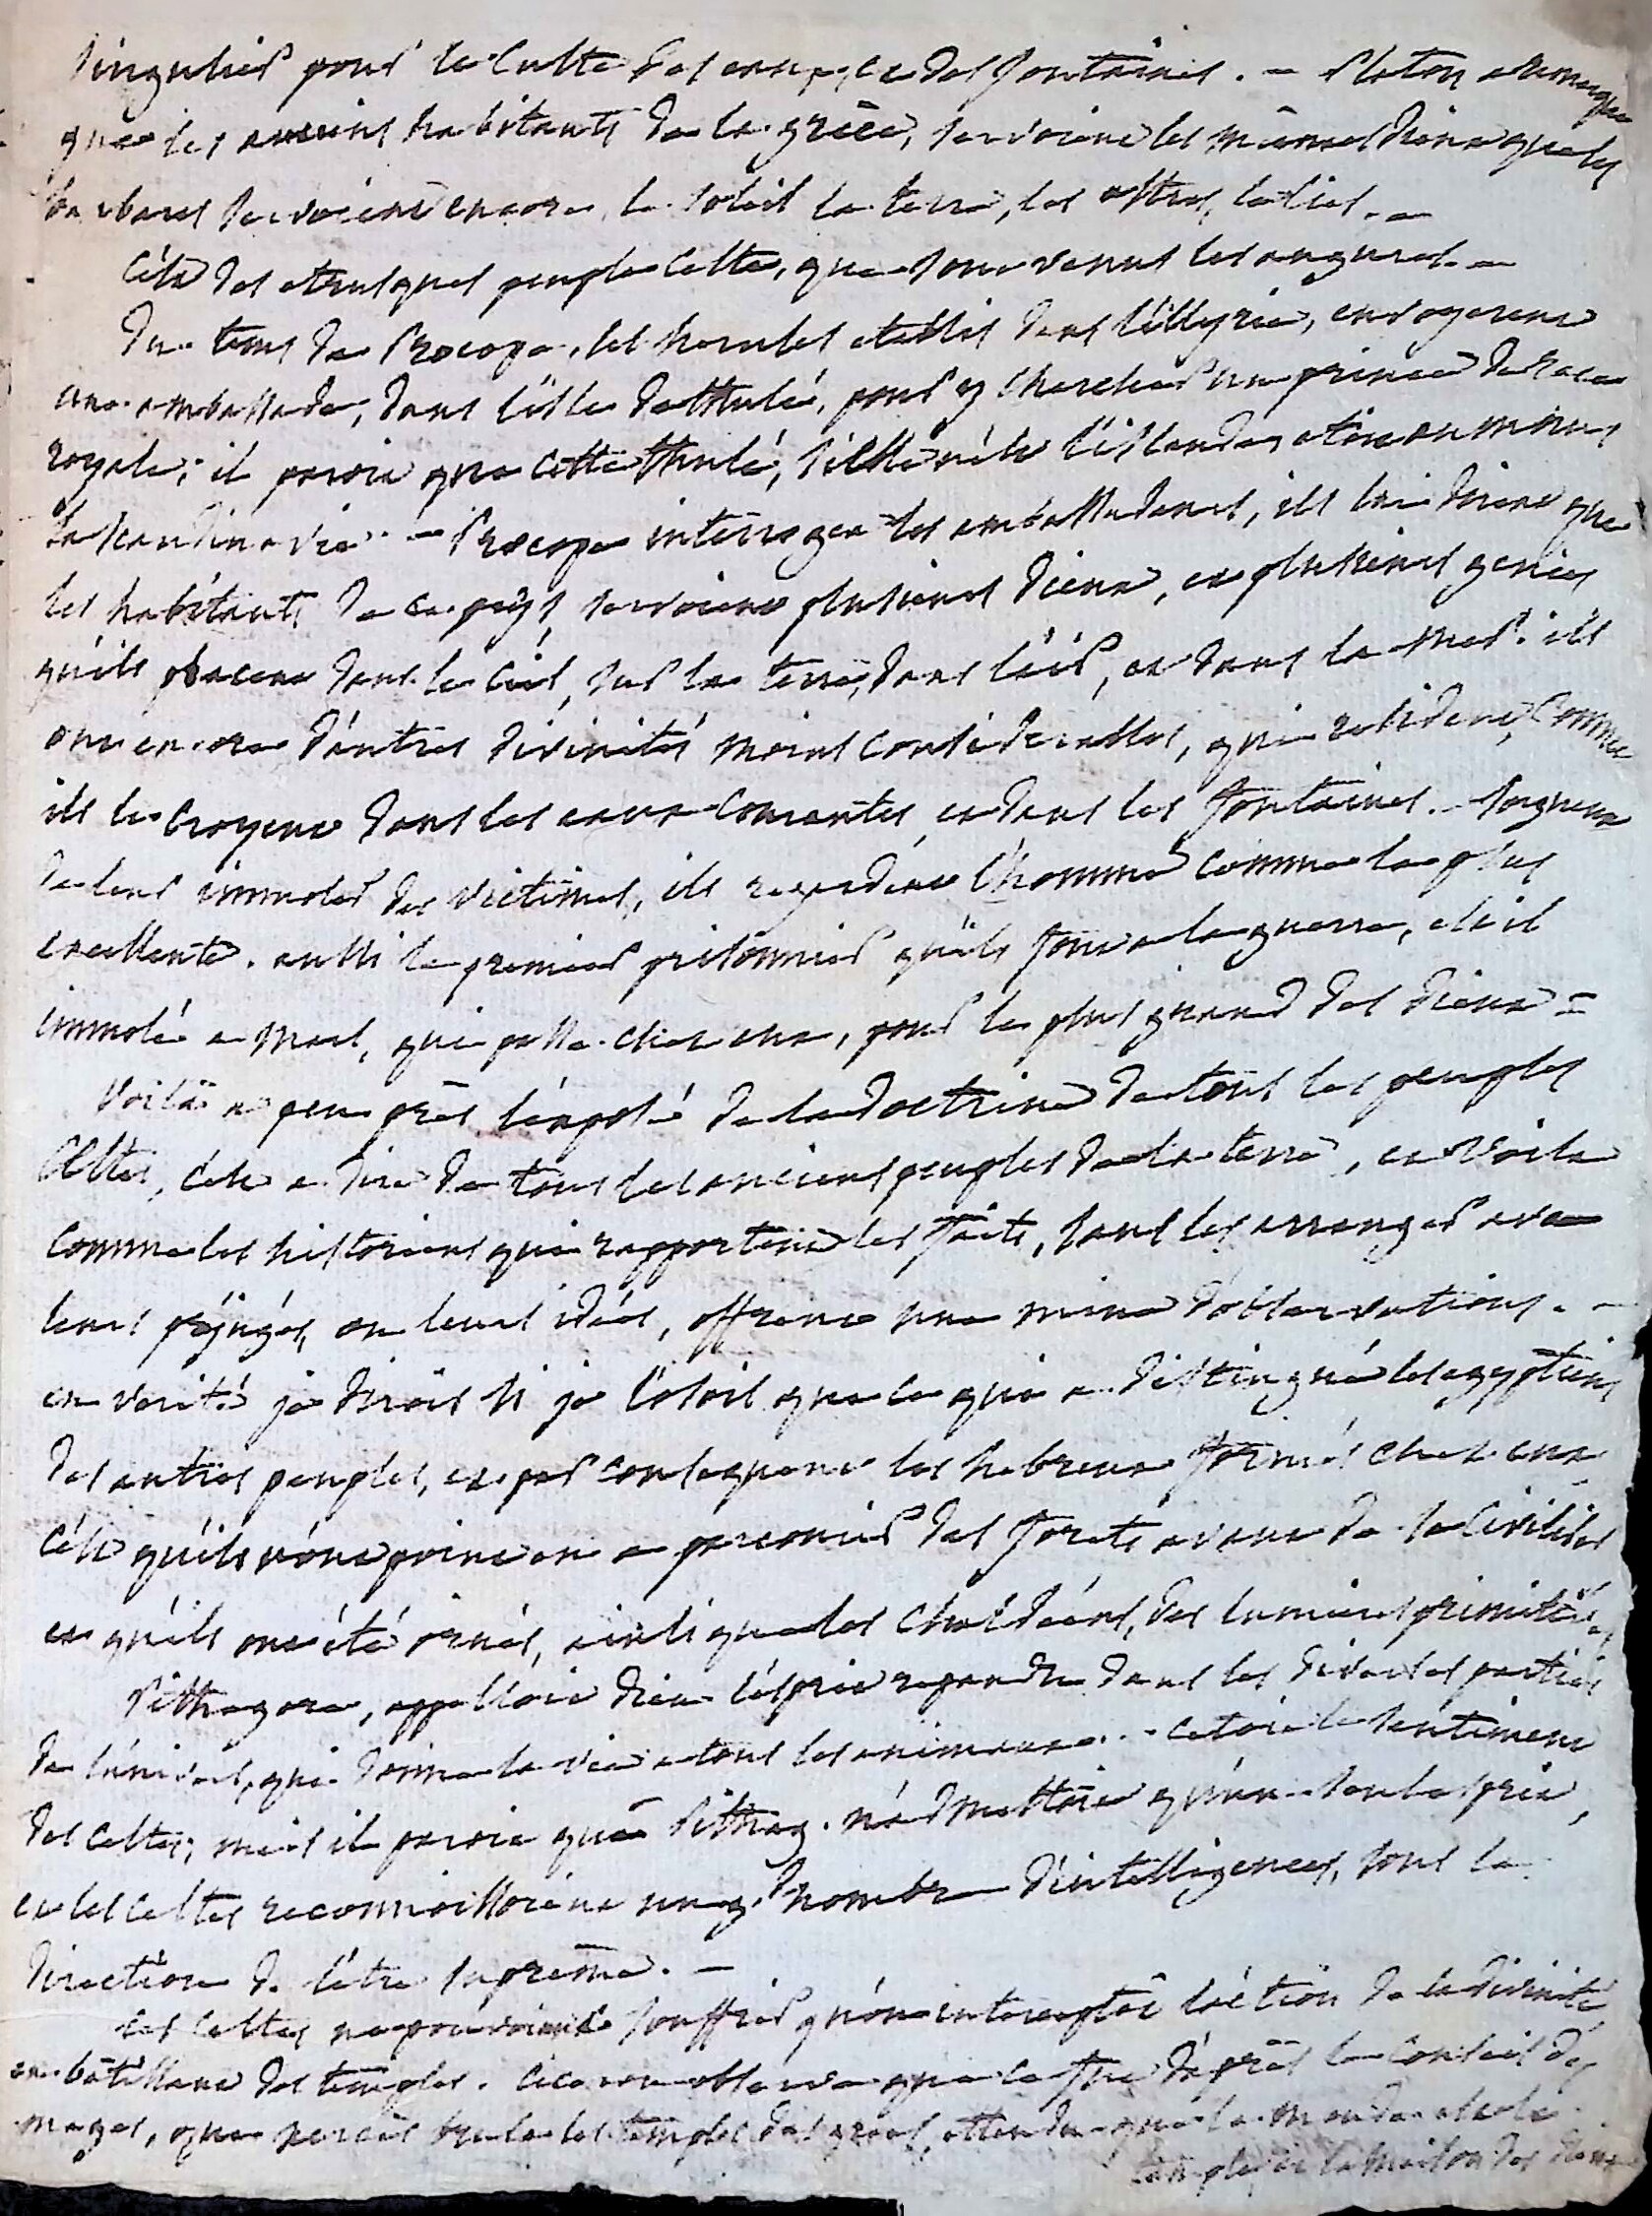 singulier pour le culte des eaux, et des fontaines. — Platon a remarqué
que les anciens habitants de la grèce, servoient les mêmes dieux que les
barbares servoient encore, le soleil la terre, les astres, le ciel. —
c'est des etrusques peuple celte, que sont venus les augures. —
Du tems de Procope, les herules etablis dans l'illyrie, envoyerent
une ambassade, dans l'isle de thulé, pour y chercher un prince de race
royale; il paroit que cette thulé, si elle n'est l'islande, etoit au moins
la scandinavie. — Procope interrogea les ambassadeurs, ils lui dirent que
les habitants de ce pays, servoient plusieurs dieux, et plusieurs genies
qu'ils placent dans le ciel, sur la terre, dans l'air, et dans la mer. ils
ont encore d'autres divinités moins considerables, qui resident, comme
ils le croyent dans les eaux courantes, et dans les fontaines. — soigneux
de leur immoler des victimes, ils regardent l'homme comme la plus
excellente. aussi le premier prisonnier qu'ils font a la guerre, est il
immolé a mars, qui passe chez eux, pour le plus grand des dieux =
Voilà a peu près l'exposé de la doctrine de tous les peuples
Celtes, c'est a dire de tous les anciens peuples de la terre, et voila
comme les historiens qui rapportent les faits, sans les arranger avec
leurs préjugés, ou leurs idées, offrent une mine d'observations. —
en verité je dirois si je l'osois que ce qui a distingué les egyptiens
des autres peuples, et par consequent les hebreux formés chez eux
c'est qu'ils n'ont point eu a parcourir des forets avant de se civiliser
et qu'ils ont été ornés, ainsi que les chaldéens, des lumieres primitives
Pithagore, appelloit dieu l'esprit repandu dans les diverses parties
de l'univers, qui donne la vie a tous les animaux. - c'etoit le sentiment
des celtes; mais il paroit que Pithag. n'admettoit qu'un seul esprit,
et les celtes reconnoissoient un gd nombre d'intelligences, sous la
direction de l'être suprême. —
Les celtes ne pouvoient souffrir qu'on interceptât l'action de la divinité
en batissant des temples. Ciceron observe que ce fut d'après le conseil des
mages, que xercès brula les temples des grecs, attendu que le monde est le
temple et la maison des dieux